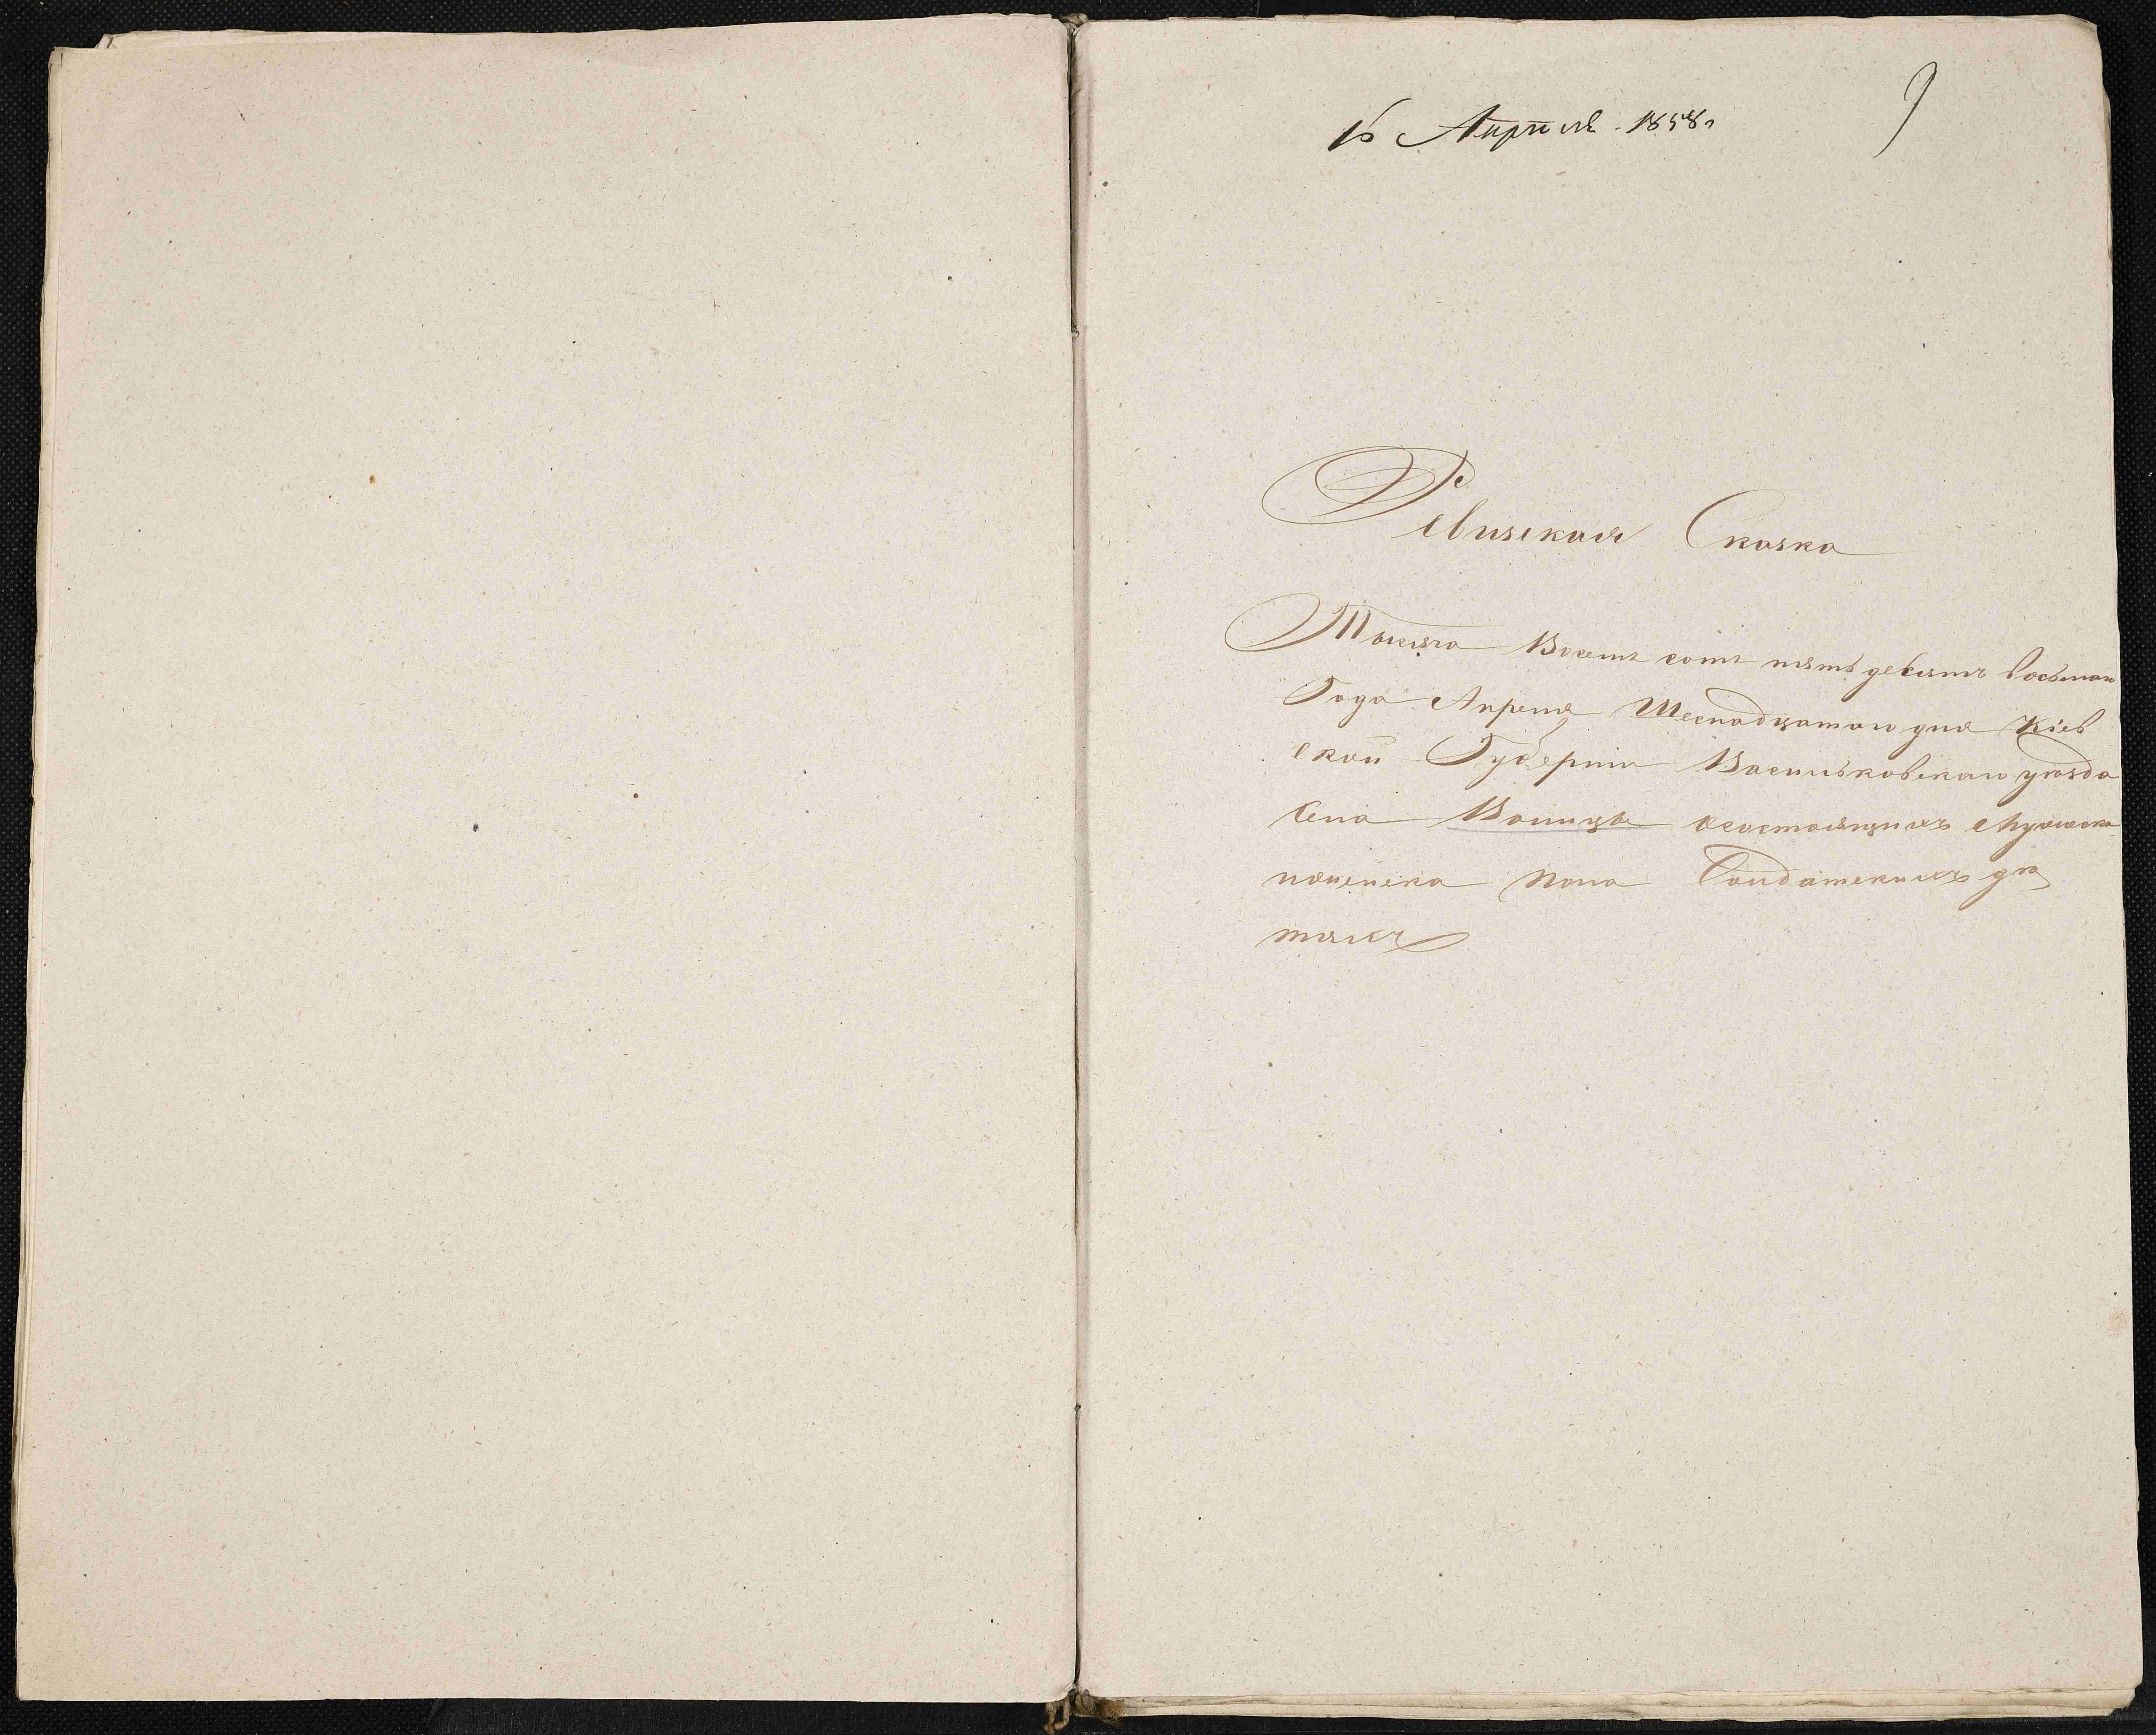 16 Апрѣля 1858 г
9
Ревизская Сказка
Тысяча Восемь сотъ пять десятъ восьмаго
Года Апреля Шеснадцатаго дня Кіев
ской Губерніи Васильковскаго уѣзда
Села
осостоящихъ Мужеска
пола Солдатскихъ дѣ
тяхъ